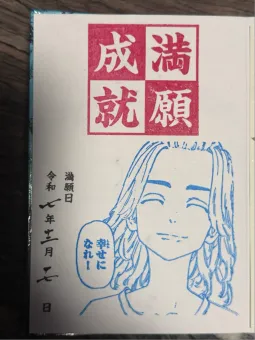 満願
成就
満願日
令和七年十二月十七日
幸せに
なれー!